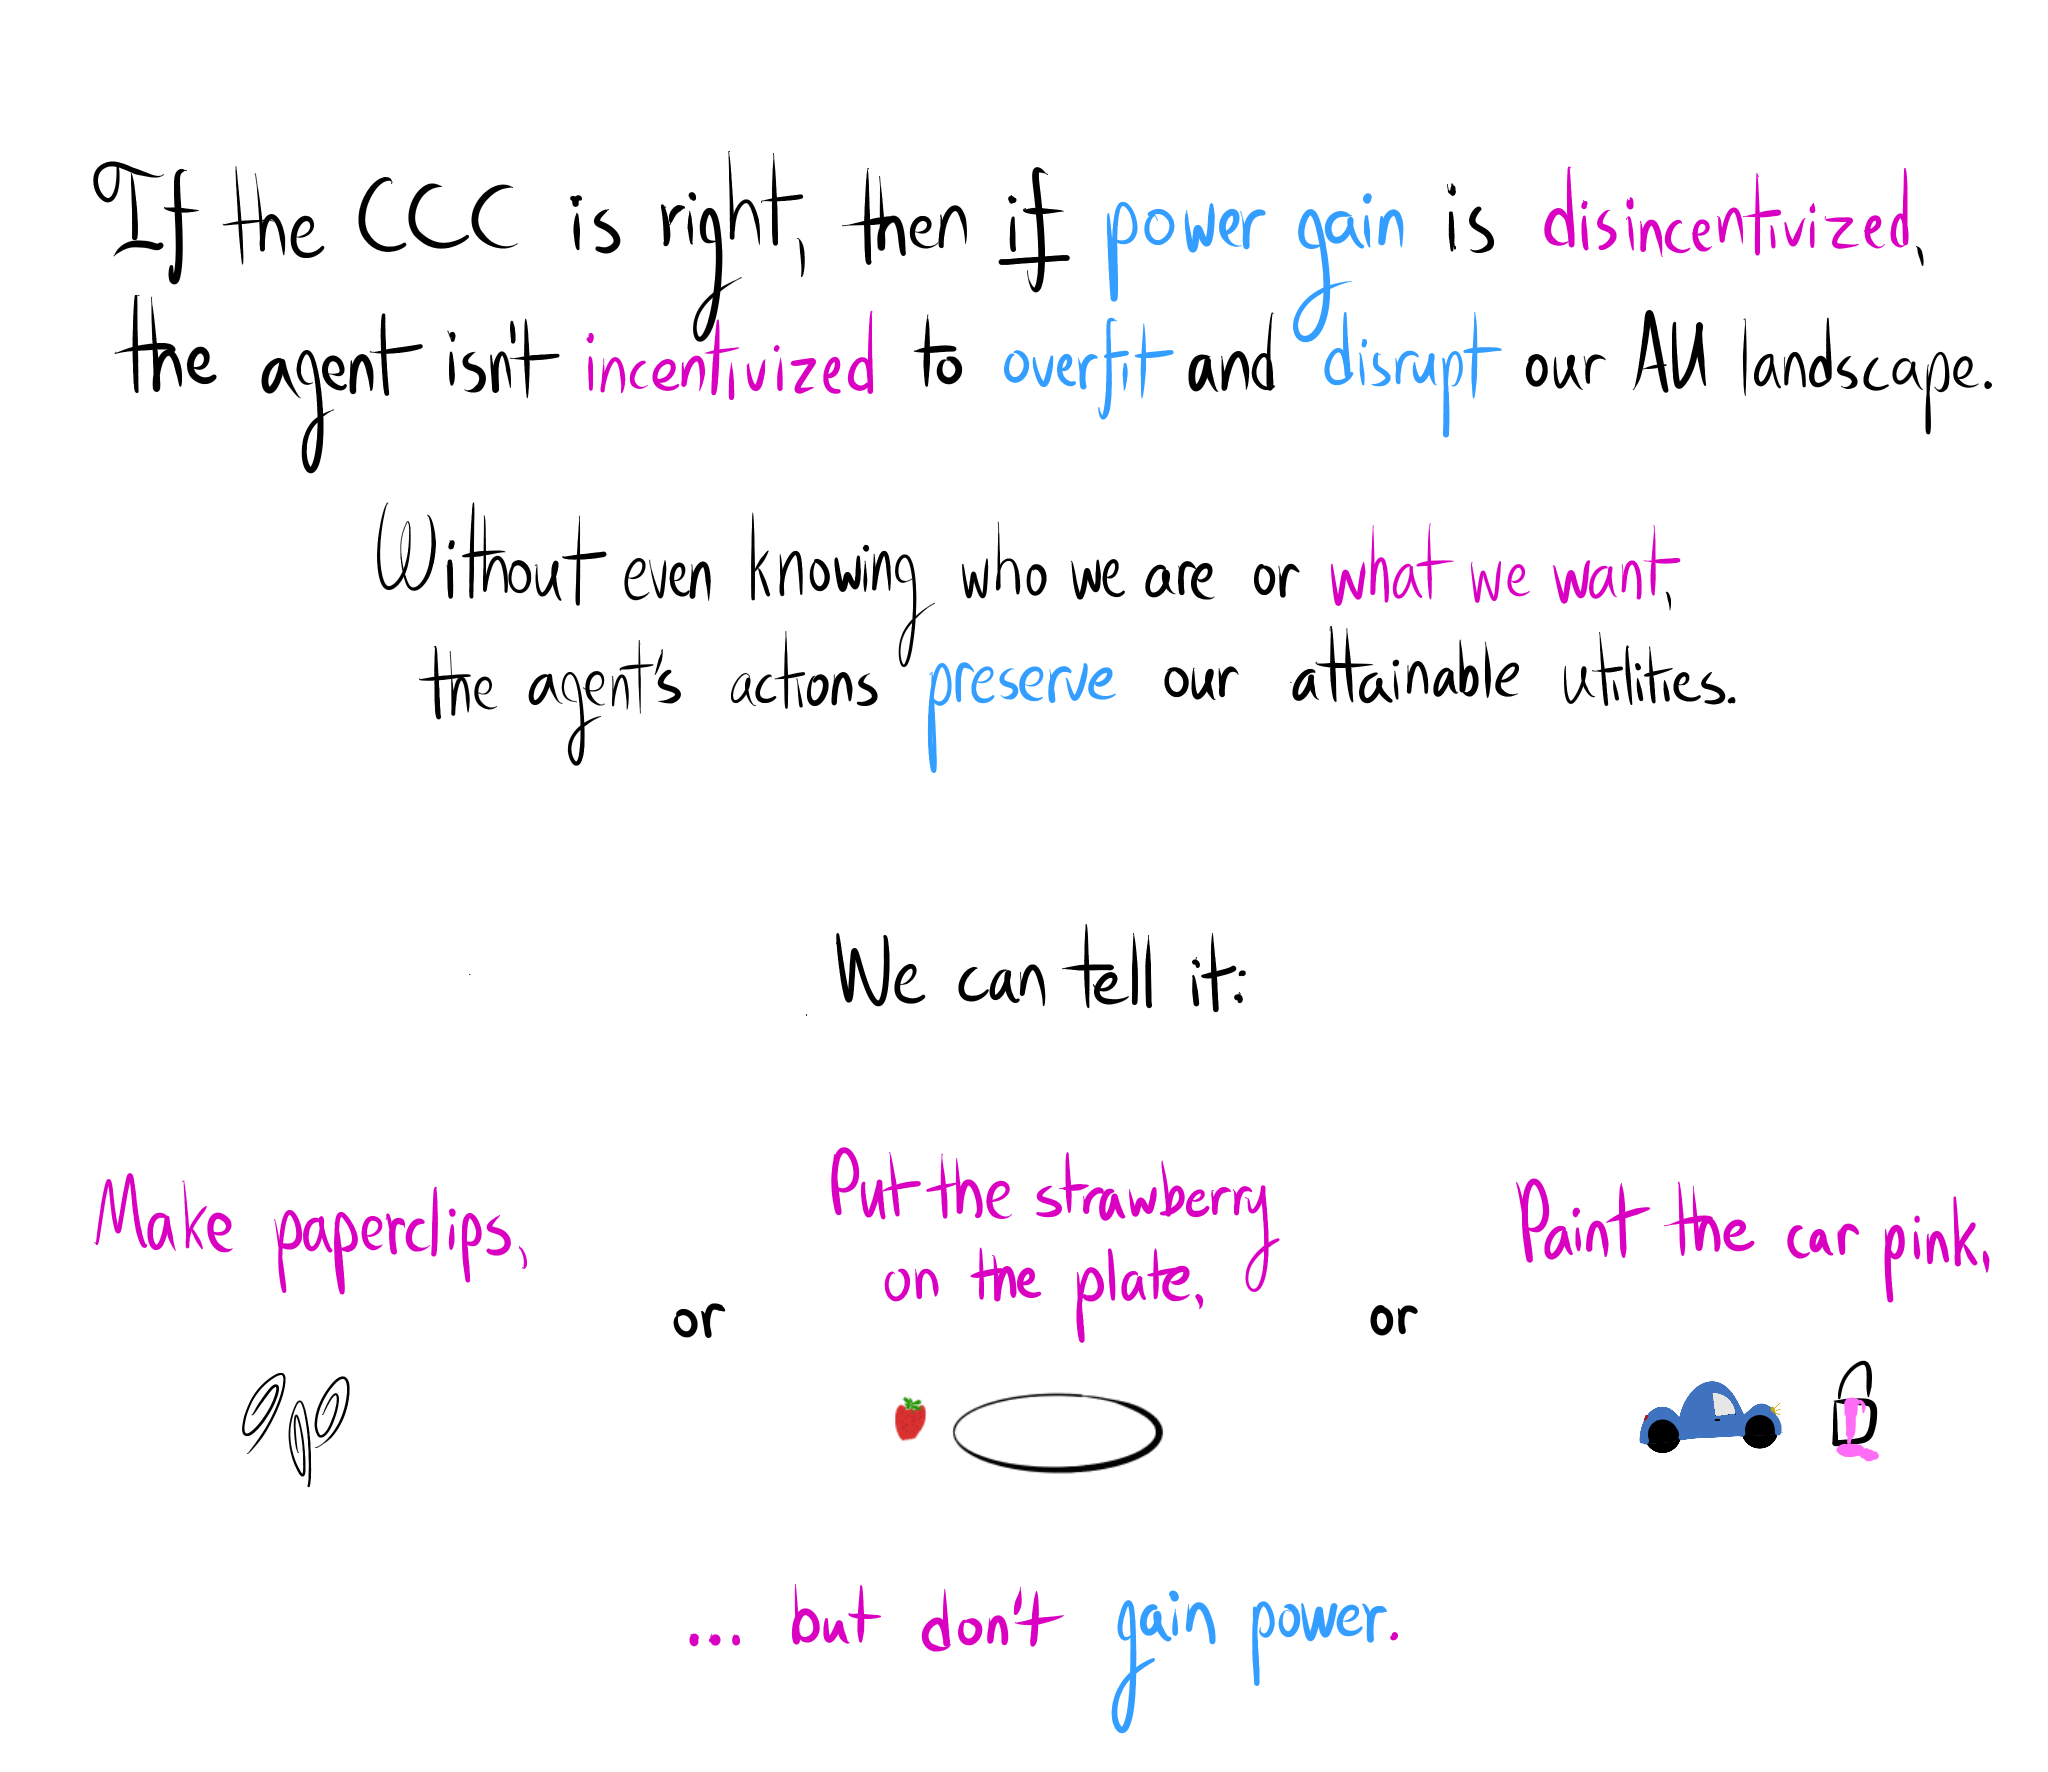 If the CCC is right, then if power gain is disincentivized,
the agent isn't incentivized to overfit and disrupt our AU landscape.
Without even knowing who we are or what we want,
the agent's actions preserve our attainable utilities.
We can tell it:
Make paperclips,
or
Put the strawberry
on the plate,
or
Paint the car pink,
... but don't gain power.